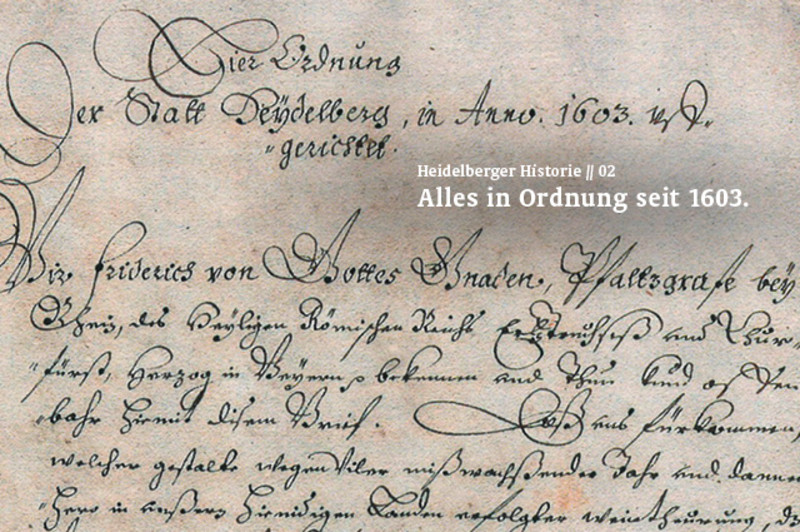 Bier Ordnung
Der Statt Heydelberg, in Anno. 1603. uff-
"gerichtet.
Heidelberger Historie // 02
Alles in Ordnung seit 1603.
Wir Friderich von Gottes Gnaden, Pfaltzgrafe bey
Rhein, des Heyligen Römischen Reichs Ertztruchseß und Chur-
"fürst, Herzog in Beyern bekennen und Thun kund offen
"bahr hiemit disem Brief. Daß uns fürkommen,
welcher gestalt wegen Viler mißwachßender Jahr und dannen
"hero in unßern hieruidigen Landen erfolgter weintheurung,